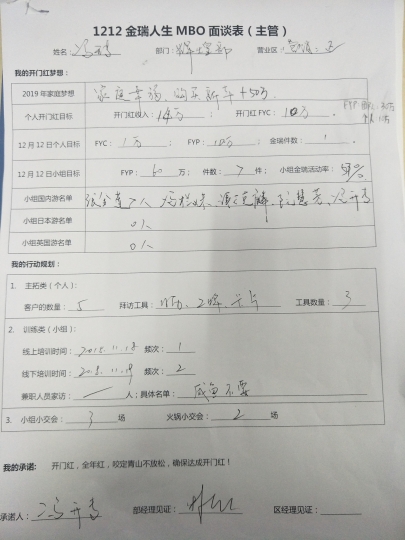 1212 金瑞人生 MBO 面谈表（主管）
姓名： 部门： 营业区：
我的开门红梦想：
2019 年家庭梦想 家庭幸福，购买新车+50万
个人开门红目标 开门红收入：14万 开门红 FYC： 10万
12 月 12 日个人目标 FYC： 1万 FYP： 10万 金瑞件数： 1
12 月 12 日小组目标 FYP： 60 万； 件数： 7 件； 小组金瑞活动率： %
小组国内游名单
小组日本游名单 0人
小组英国游名单 0人
我的行动规划：
1. 主拓类（个人）：
客户的数量： 5 拜访工具： 工具数量： 3
2. 训练类（小组）：
线上培训时间： 2018.11.18 频次： 1
线下培训时间： 2018.11.19 频次： 2
兼职人员家访： 人；具体名单： 咸鱼不要
3. 小组小交会： 3 场 火锅小交会： 2 场
我的承诺： 开门红，全年红，咬定青山不放松，确保达成开门红！
承诺人： 冯开秀 部经理见证： 区经理见证：